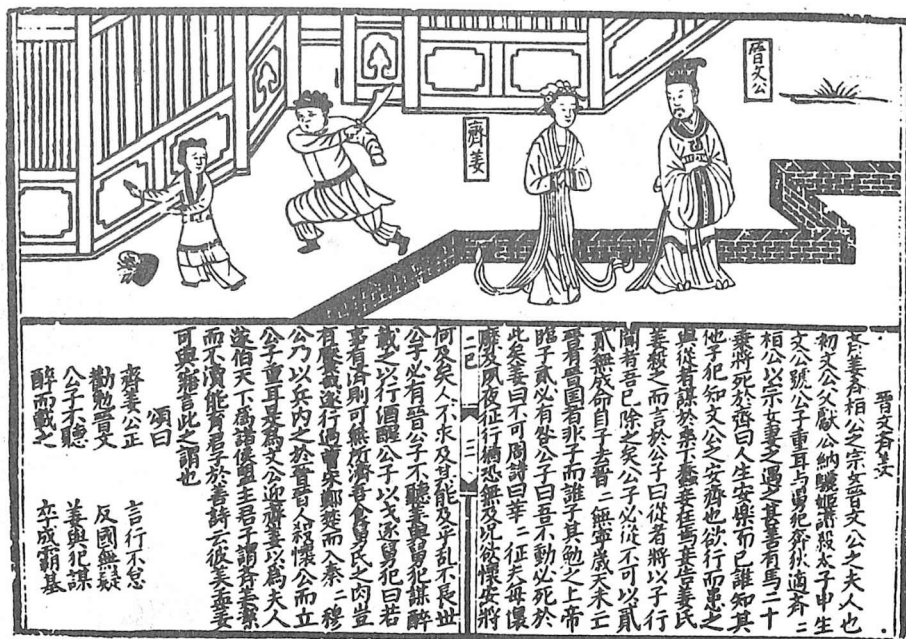 晉文公
齊姜
晉文齊姜
齊姜齊桓公之宗女晉文公之夫人也
初文公父獻公納驪姬譖殺太子申生
文公號公子重耳与舅犯奔狄適齊二
桓公以宗女妻之遇之甚善有馬二十
乗將死於齊曰人生安樂而已誰知其
他子犯知文公之安齊也欲行而患之
與從者謀於桒下蠶妾在焉妾告姜氏
姜殺之而言於公子曰從者將以子行
聞者吾已除之矣公子必從不可以貳
貳無成命自子去晉二無寧歳天未亡
晉有晉國者非子而誰子其勉之上帝
臨子貳必有咎公子曰吾不動必死於
此矣姜曰不可周詩曰莘二征夫每懷
靡及夙夜征行猶恐無及況欲懷安將
何及矣人不求及其能及乎乱不長世
公子必有晉公子不聽姜與舅犯謀醉
載之以行酒醒公子以戈逐舅犯曰若
事有濟則可無所濟吾食舅氏之肉豈
有饜哉遂行過曹宋鄭楚而入秦二穆
公乃以兵内之於晉晉人殺懷公而立
公子重耳是為文公迎齊姜以為夫人
遂伯天下為諸侯盟主君子謂齊姜絜
而不瀆能育君子於善詩云彼美孟姜
可與寤言此之謂也
頌曰
齊姜公正 言行不怠
勸勉晉文 反國無疑
公子不聽 姜與犯謀
醉而載之 卒成霸基